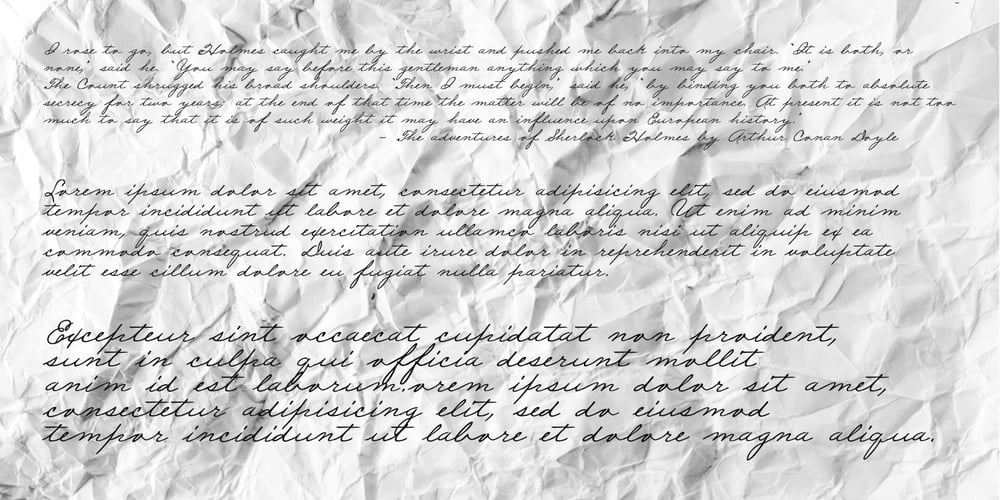 I rose to go, but Holmes caught me by the wrist and pushed me back into my chair. "It is both, or
none," said he. "You may say before this gentleman anything which you may say to me."
The Count shrugged his broad shoulders. "Then I must begin," said he, "by binding you both to absolute
secrecy for two years; at the end of that time the matter will be of no importance. At present it is not too
much to say that it is of such weight it may have an influence upon European history."
- The adventures of Sherlock Holmes by Arthur Conan Doyle
Lorem ipsum dolor sit amet, consectetur adipisicing elit, sed do eiusmod
tempor incididunt ut labore et dolore magna aliqua. Ut enim ad minim
veniam, quis nostrud exercitation ullamco laboris nisi ut aliquip ex ea
commodo consequat. Duis aute irure dolor in reprehenderit in voluptate
velit esse cillum dolore eu fugiat nulla pariatur.
Excepteur sint occaecat cupidatat non proident,
sunt in culpa qui officia deserunt mollit
anim id est laborum.:orem ipsum dolor sit amet,
consectetur adipisicing elit, sed do eiusmod
tempor incididunt ut labore et dolore magna aliqua.